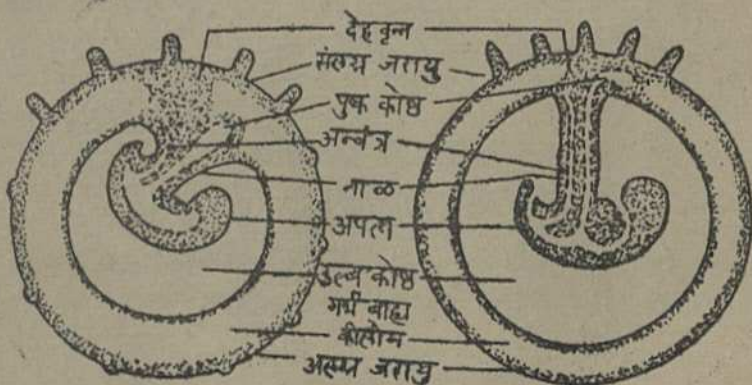 देहवृन्त
संलग्न जरायु
पुष्क कोष्ठ
अन्त्र
नाळ
अपत्य
उल्ब कोष्ठ
गर्भ बाह्य
अलग्न जरायु